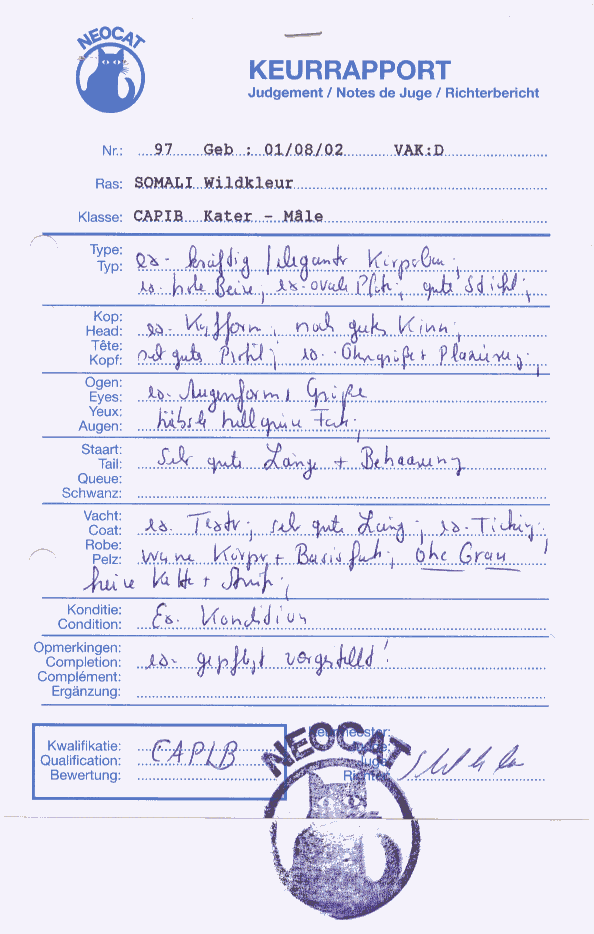 NEOCAT
KEURRAPPORT
Judgement / Notes de Juge / Richterbericht
Nr.: 97 Geb : 01/08/02 VAK:D
Ras: SOMALI Wildkleur
Klasse: CAPIB Kater - Mâle
Type: ex. kräftig / eleganter
Typ: ex. hohe Beine, ex. ovale Pfote; gute
Kop: ex. Kopfform, noch gutes Kinn;
Head:
Tête: sehr gutes Profil; ex. Ohrgröße + Platzierung;
Kopf:
Ogen: ex. Augenform + Größe
Eyes:
Yeux: hübsche hellgrüne Farbe;
Augen:
Staart: Sehr gute Länge + Behaarung
Tail:
Queue:
Schwanz:
Vacht: ex. Textur; sehr gute Länge; ex. Ticking;
Coat:
Robe: warme Körper + Basisfarbe; ohne Grau
Pelz:
keine Kette + Streifen;
Konditie: Ex. Kondition
Condition:
Opmerkingen: ex. gepflegt vorgestellt!
Completion:
Complément:
Ergänzung:
Kwalifikatie: CAPIB
Qualification:
Bewertung:
Keurmeester:
Judge:
Juge:
Richter:
NEOCAT